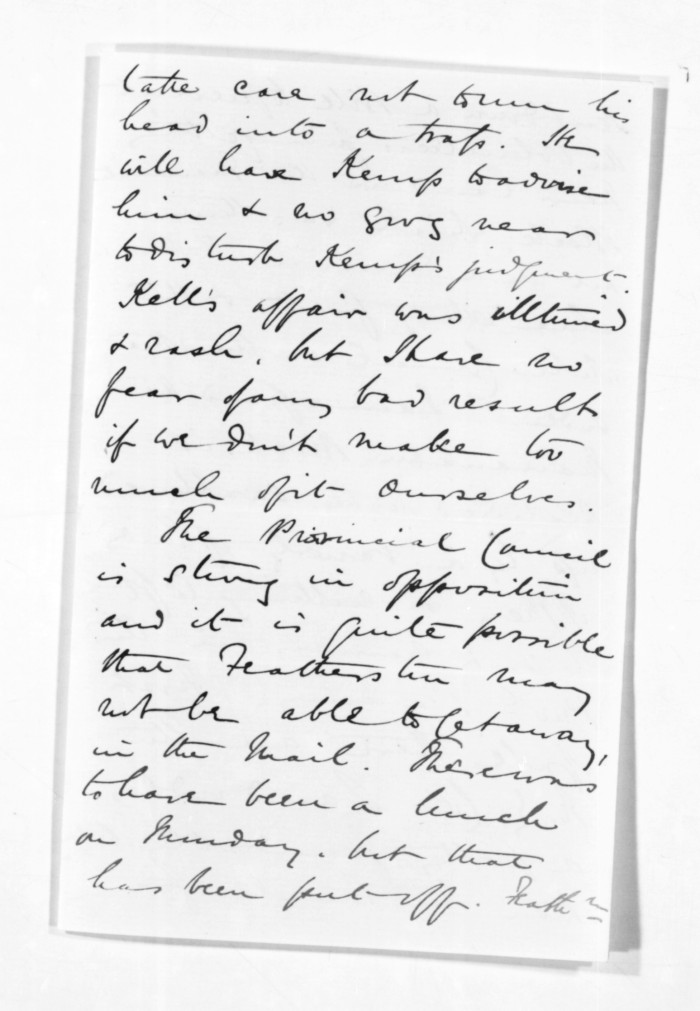 take care not to run his
head into a trap. He
will have Kemp to advise
him & no  near
to disturb Kemp's judgment.
Kell's affair was illtimed
& rash, but I have no
fear of any bad results
if we don't make too
much of it ourselves.
The Provincial Council
is strong in opposition
and it is quite possible
that Featherston may
not be able to get away,
in the Mail. There was
to have been a lunch
on Monday, but that
has been put off. Feathn